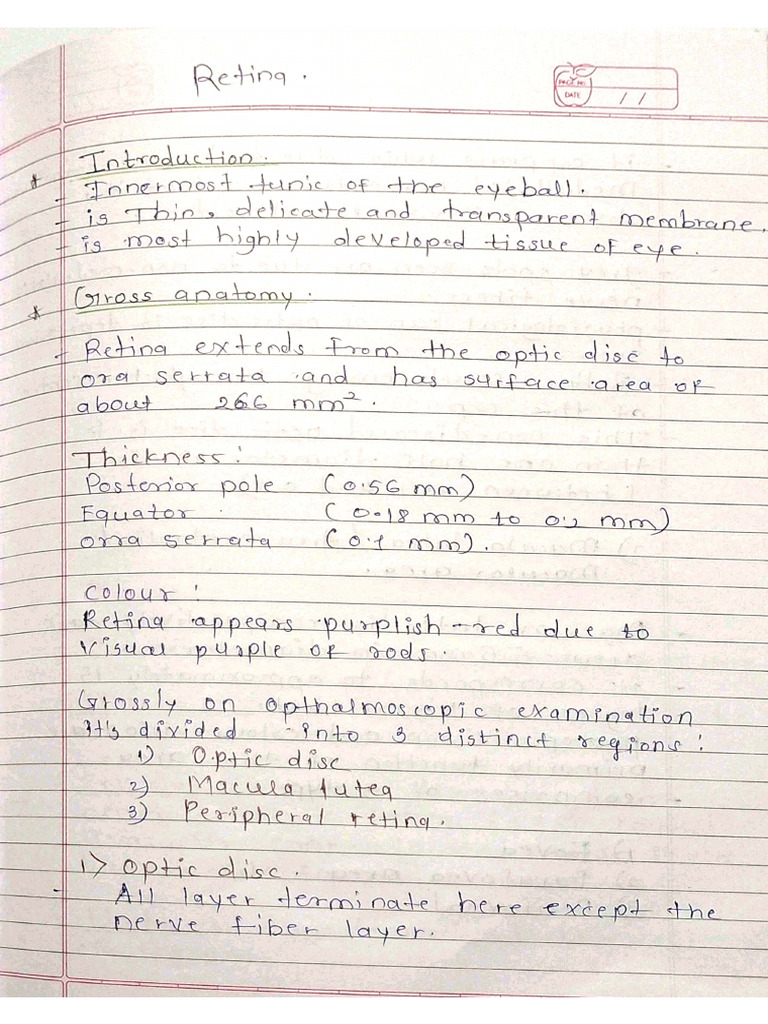 Retina.
PAGE NO.
DATE / /
* Introduction.
- Innermost tunic of the eyeball.
- is Thin, delicate and transparent membrane.
- is most highly developed tissue of eye.
* Gross anatomy.
- Retina extends from the optic disc to
ora serrata and has surface area of
about 266 mm².
Thickness:
Posterior pole (0.56 mm)
Equator (0.18 mm to 0.2 mm)
orra serrata (0.1 mm).
colour:
Retina appears purplish-red due to
visual purple of rods.
Grossly on opthalmoscopic examination
it's divided into 3 distinct regions:
1) Optic disc
2) Macula lutea
3) Peripheral retina.
1> optic disc.
- All layer terminate here except the
nerve fiber layer.